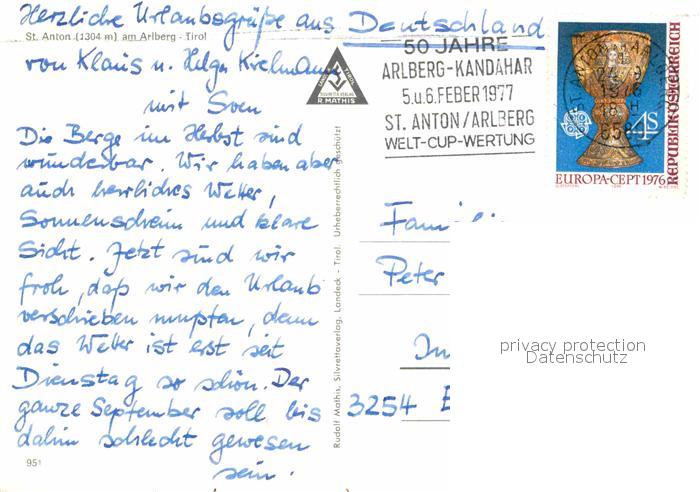 Herzliche Urlaubsgrüße aus Deutschland
St. Anton (1304 m) am Arlberg - Tirol
von Klaus u. Helga Kielmann
mit Sven
Die Berge im Herbst sind
wunderbar. Wir haben aber
auch herrliches Wetter,
Sonnenschein und klare
Sicht. Jetzt sind wir
froh, daß wir den Urlaub
verschieben mußten, denn
das Wetter ist erst seit
Dienstag so schön. Der
ganze September soll bis
dahin schlecht gewesen
sein.
951
R. MATHIS
Rudolf Mathis, Silvrettaverlag, Landeck - Tirol. Urheberrechtlich geschützt!
50 JAHRE
ARLBERG-KANDAHAR
5.u.6.FEBER 1977
ST. ANTON/ARLBERG
WELT-CUP-WERTUNG
4S
REPUBLIK ÖSTERREICH
EUROPA-CEPT 1976
Fam
Peter
In
3254 E
privacy protection
Datenschutz